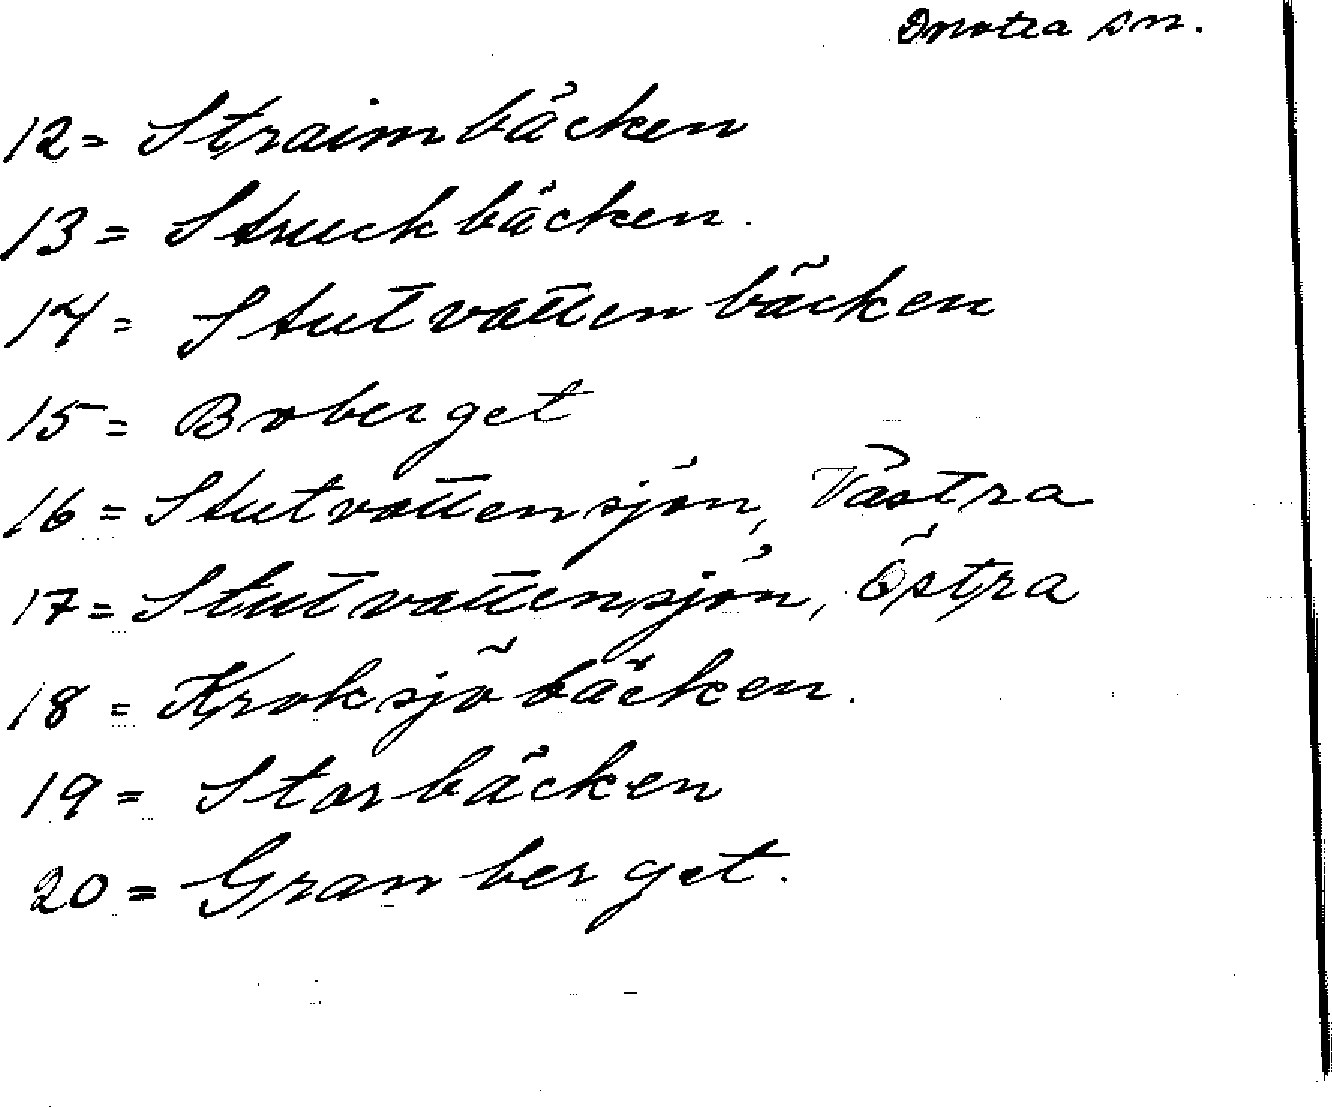 Dorotea sn.
12 = Straimbäcken
13 = Struckbäcken.
14 = Stutvattenbäcken
15 = Boberget
16 = Stutvattensjön, Västra
17 = Stutvattensjön, Östra
18 = Kroksjöbäcken.
19 = Storbäcken
20 = Granberget.